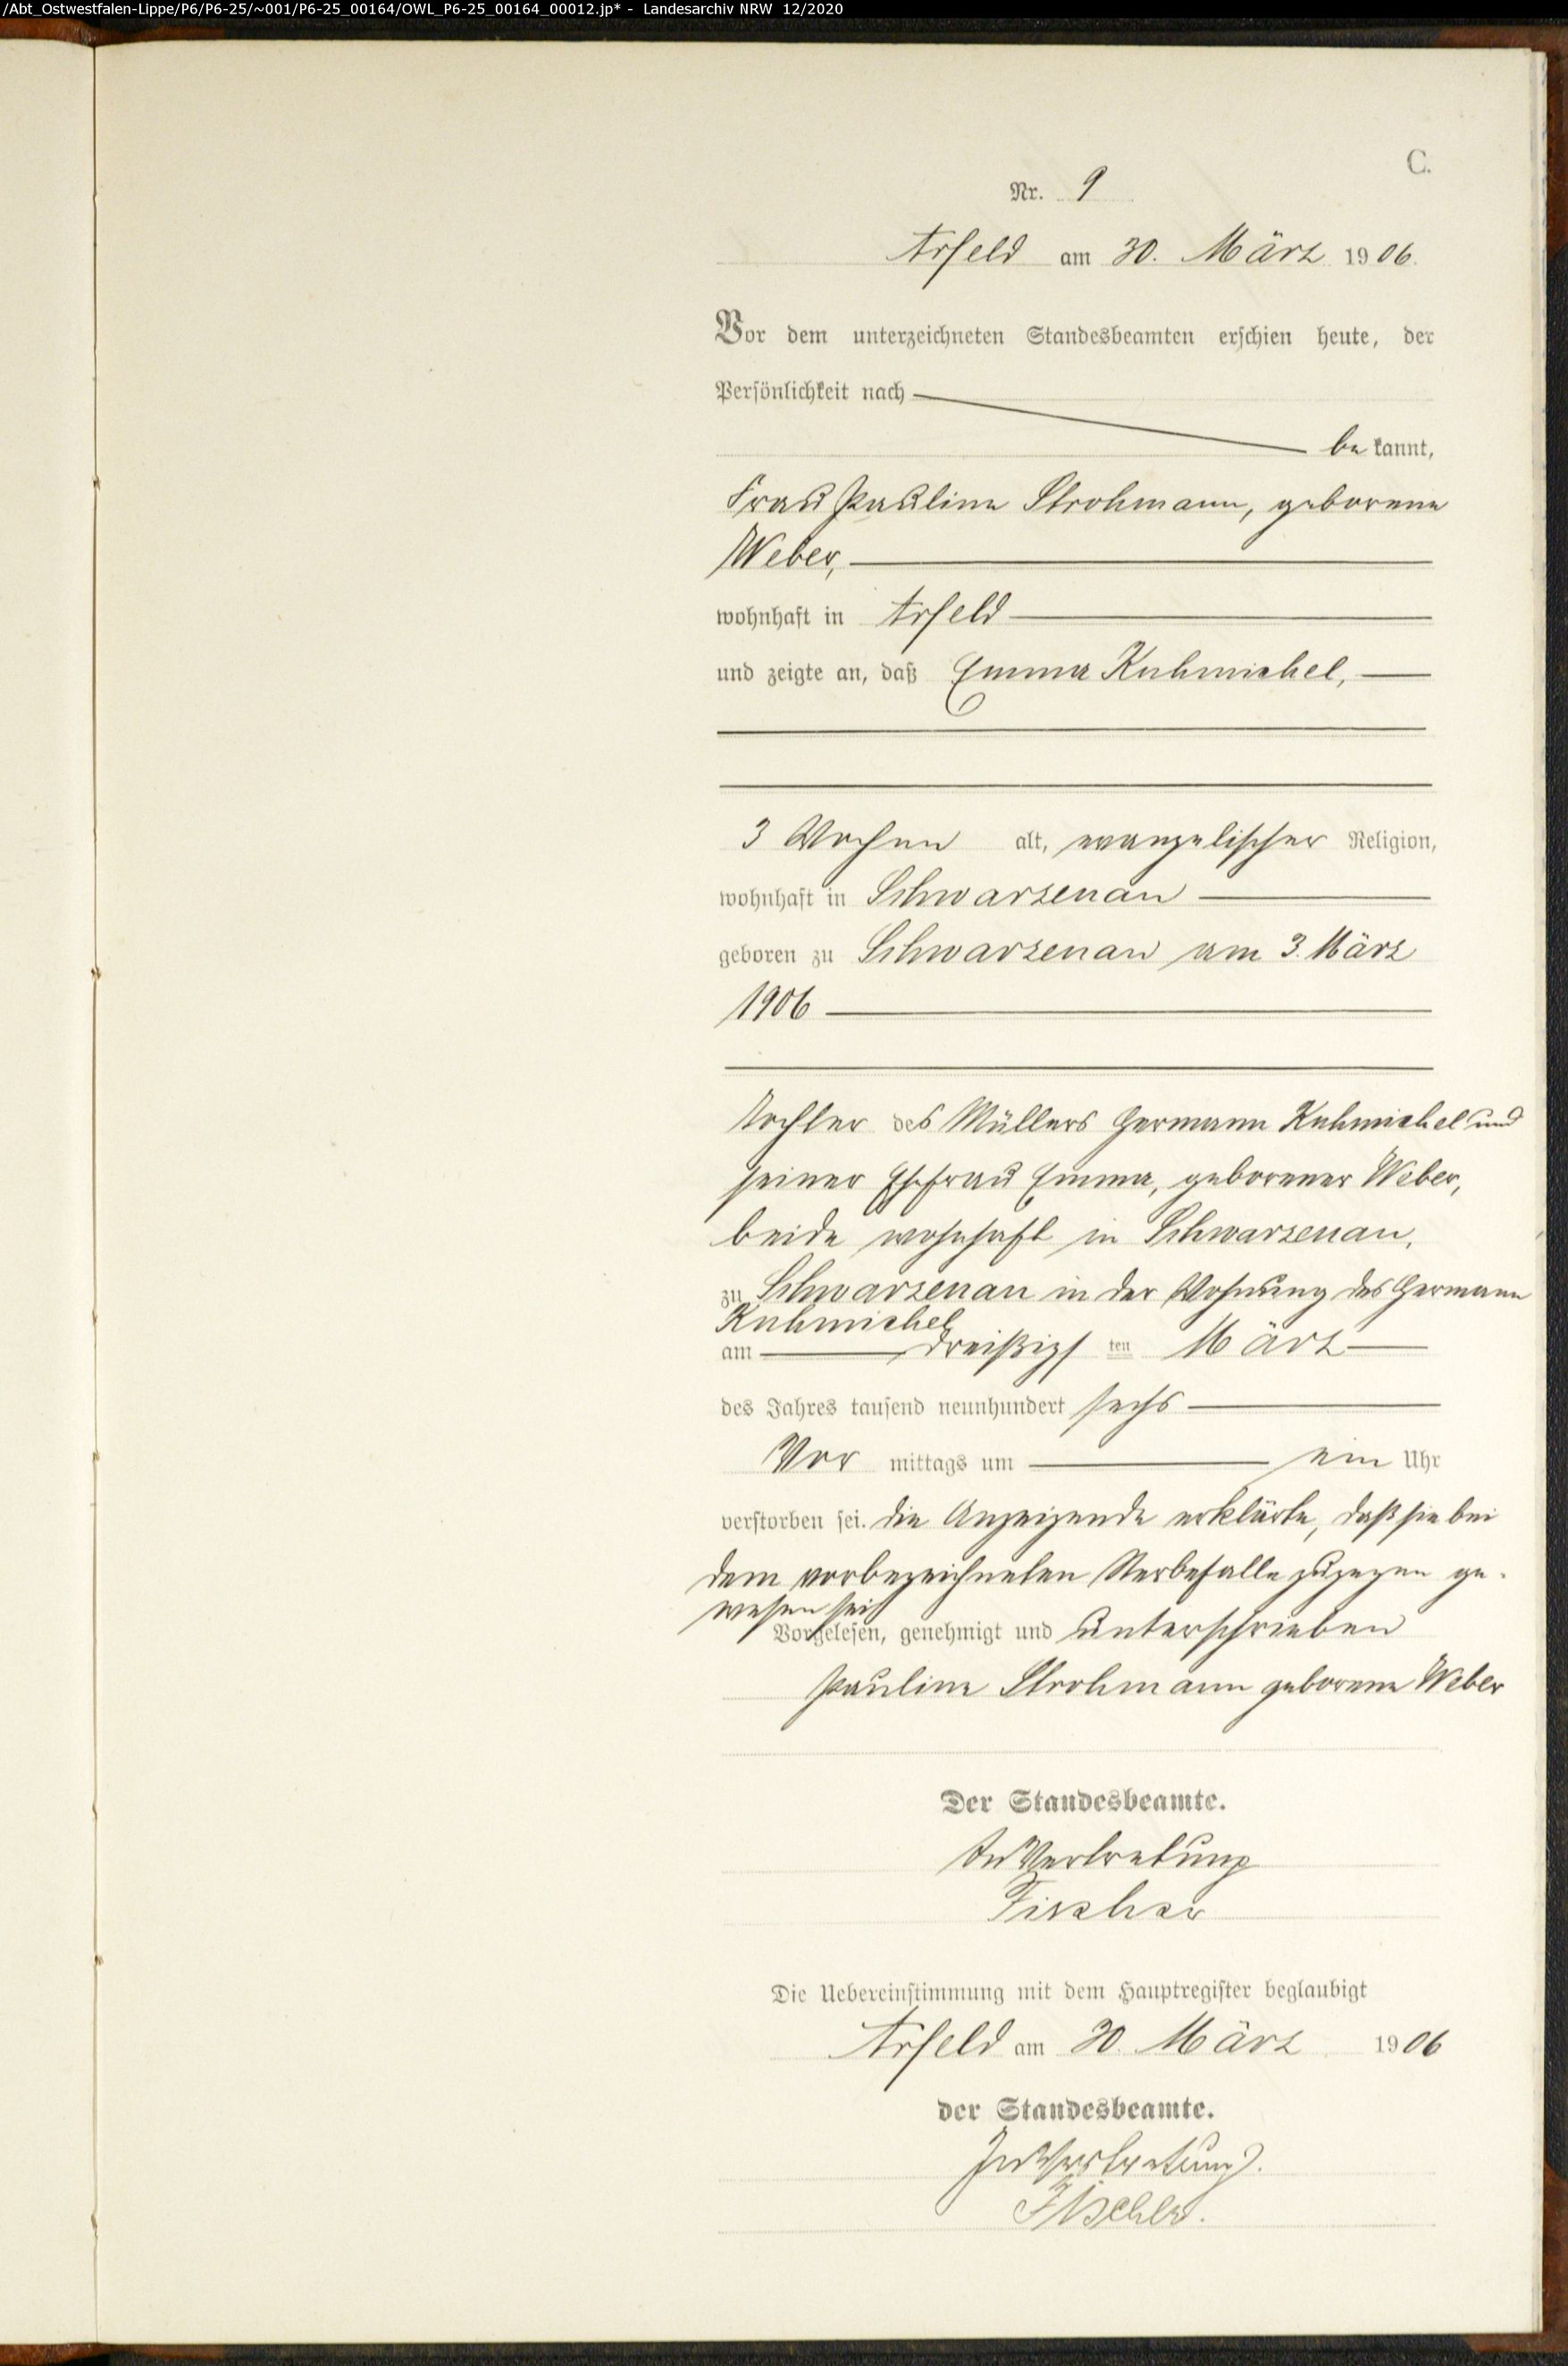 /Abt_Ostwestfalen-Lippe/P6/P6-25/~001/P6-25_00164/OWL_P6-25_00164_00012.jp* - Landesarchiv NRW 12/2020
C.
Nr. 9
Arfeld am 30. März 1906.
Vor dem unterzeichneten Standesbeamten erschien heute, der
Persönlichkeit nach
be kannt,
Frau Pauline Strohmann, geborene
Weber,
wohnhaft in Arfeld
und zeigte an, daß Emma Kuhmichel,
3 Wochen alt, evangelischer Religion,
wohnhaft in Schwarzenau
geboren zu Schwarzenau am 3. März
1906
Tochter des Müllers Hermann Kuhmichel und
seiner Ehefrau Emma, geborener Weber,
beide wohnhaft in Schwarzenau,
zu Schwarzenau in der Wohnung des Hermann
Kuhmichel
am dreißigsten März
des Jahres tausend neunhundert sechs
Vor mittags um ein Uhr
verstorben sei. die Anzeigende erklärte, daß sie bei
dem vorbezeichneten Sterbefalle zugegen ge-
wesen sei
Vorgelesen, genehmigt und unterschrieben
Pauline Strohmann geborene Weber
Der Standesbeamte.
In Vertretung
Fischer
Die Uebereinstimmung mit dem Hauptregister beglaubigt
Arfeld am 30. März 1906
der Standesbeamte.
In Vertretung.
Fischer.